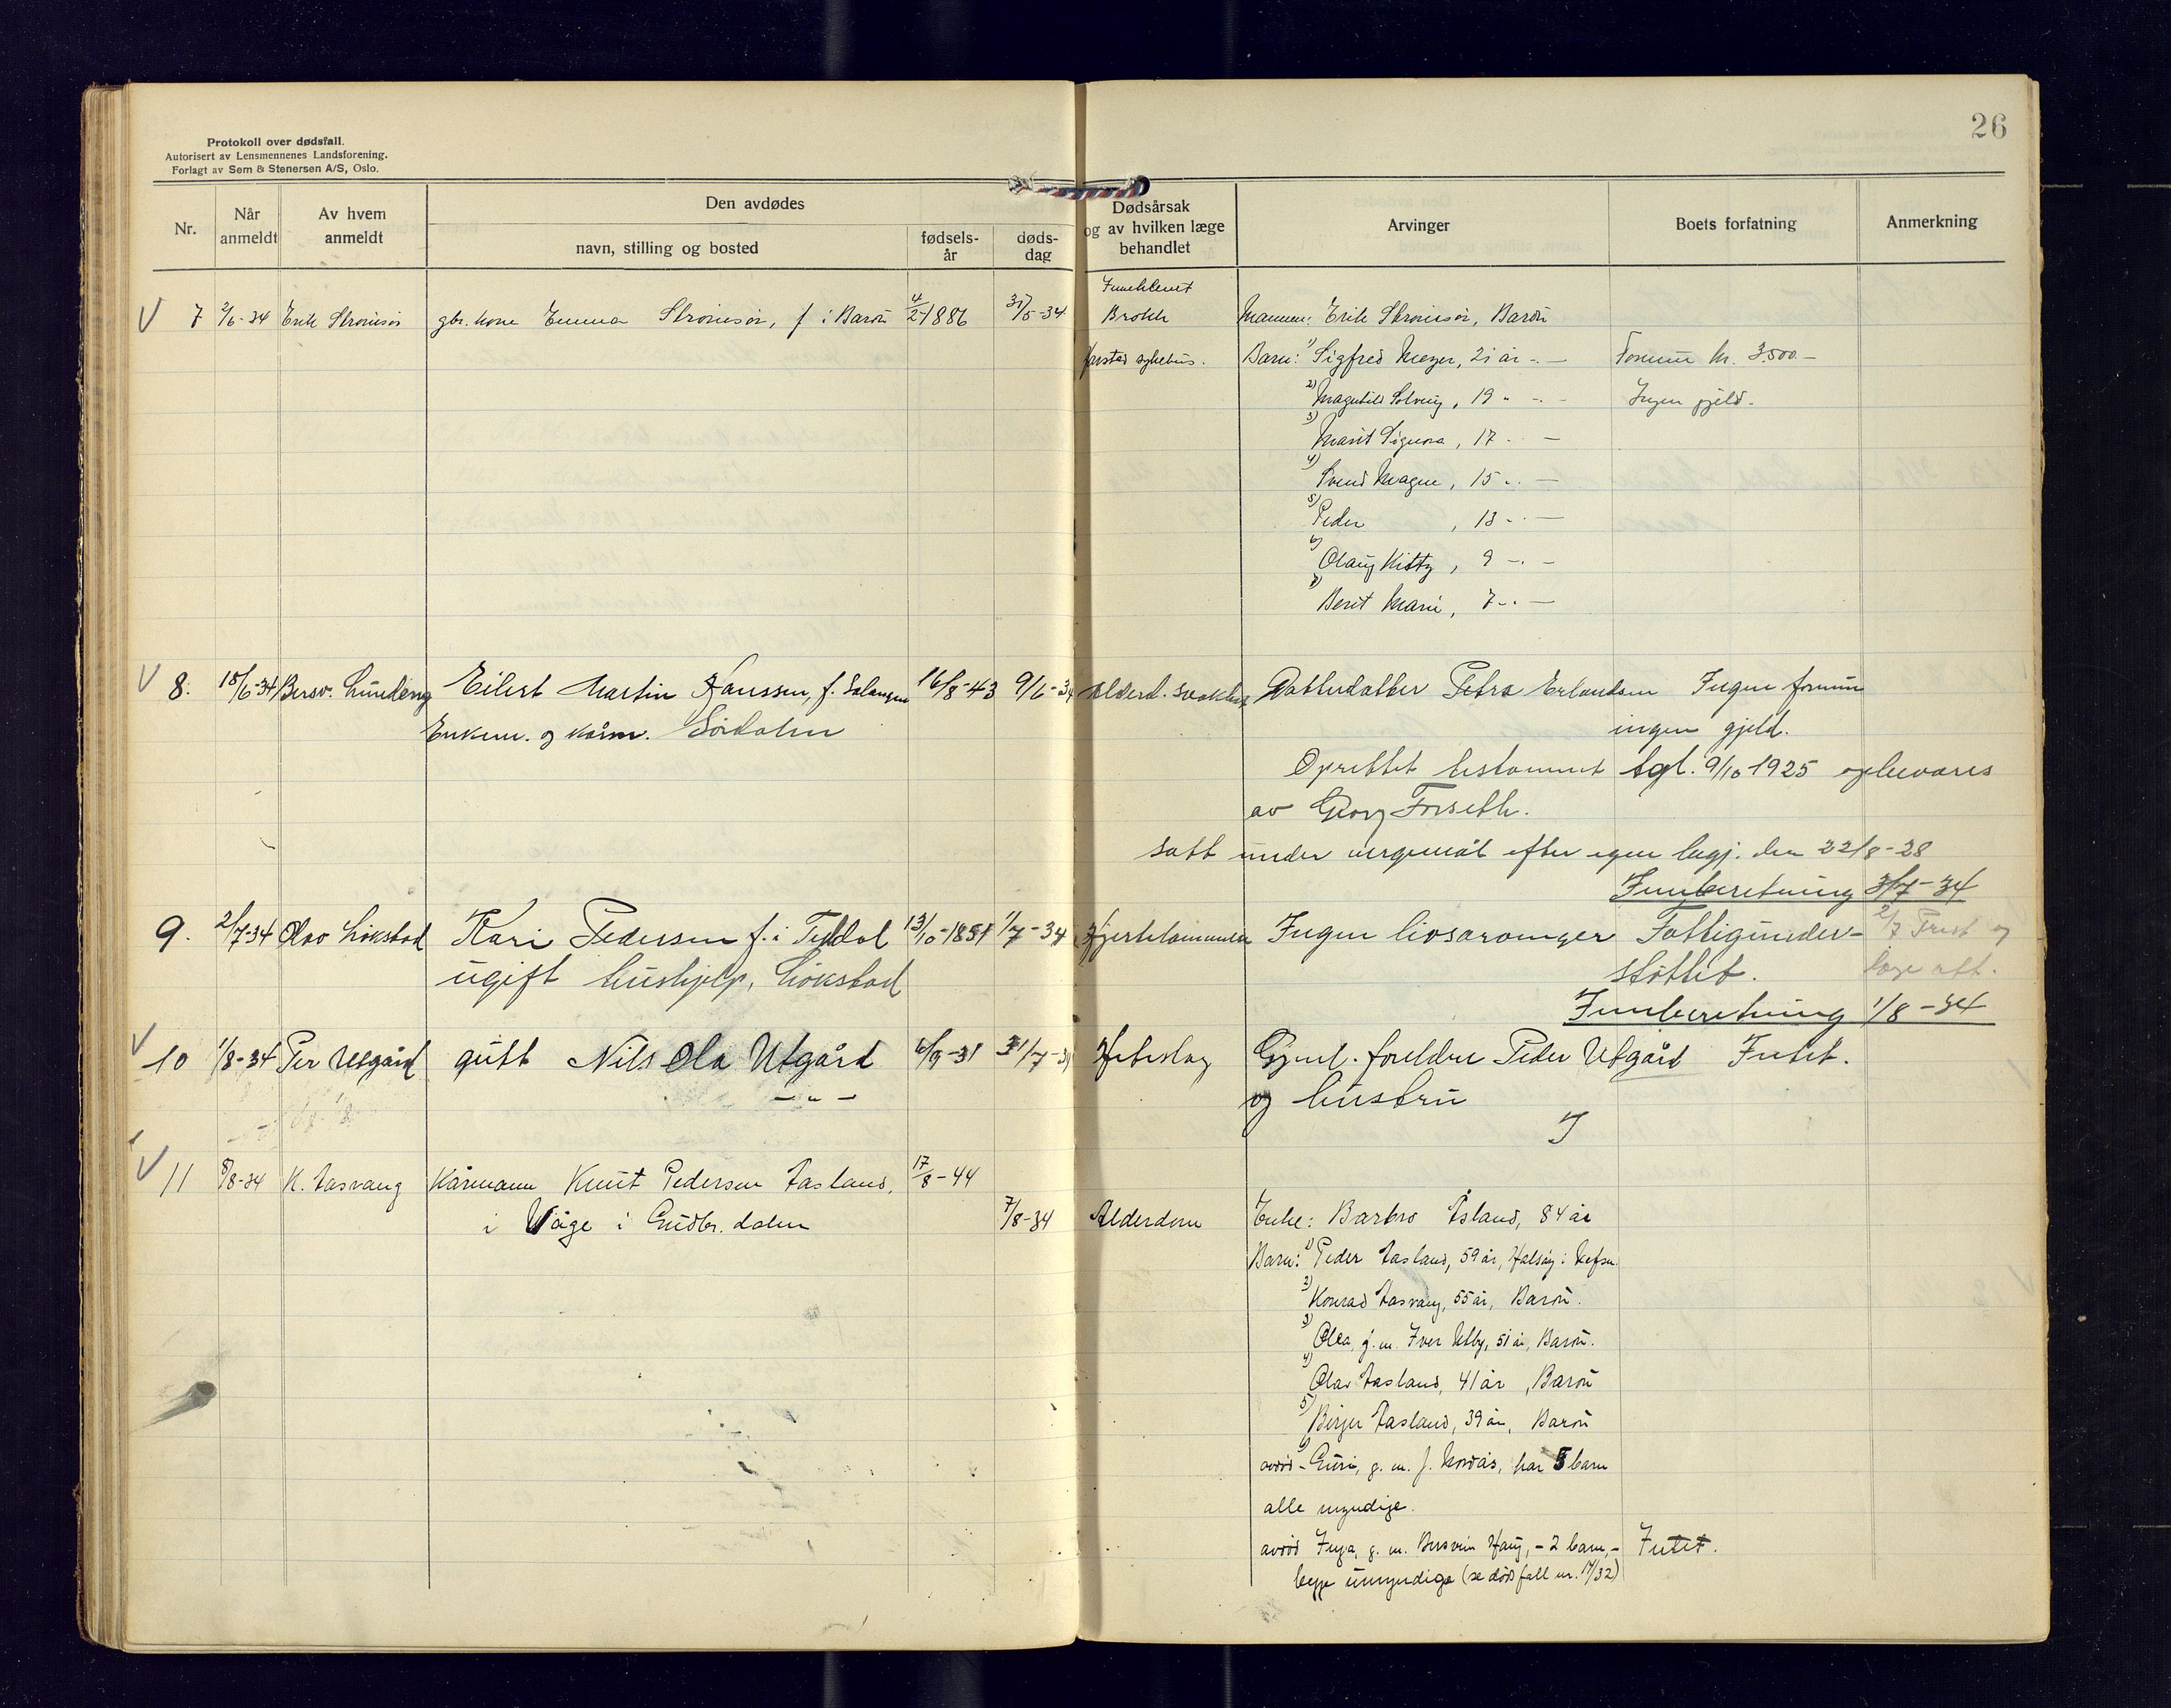 26
Protokoll over dødsfall.
Autorisert av Lensmennenes Landsforening.
Forlagt av Sem & Stenersen A/S, Oslo.
Nr.
Når anmeldt
Av hvem anmeldt
Den avdødes
navn, stilling og bosted
fødsels-år
døds-dag
Dødsårsak og av hvilken læge behandlet
Arvinger
Boets forfatning
Anmerkning
V 7 2/6-34 Erik Strømsør gbr. kone Emma Strømsør, f i Bardu 4/2 1886 31/5-34
Inneklemt
Brokk
Harstad sykehus.
Mannen: Erik Strømsør, Bardu
Barn: 1) Sigfred Meyer, 21 år -.- Formue kr. 3.500.-
2) Magnhild Solveig, 19 " -.- Ingen gjeld.
3) Marit Signora, 17 -.-
4) Svend Magne, 15 -.-
5) Peder , 13 -.-
6) Olaug Kitty, 9 -.-
7) Berit Marie, 7 -.-
V 8. 15/6-34 Bersv. Lundeng Eilert Martin Hanssen, f. Salangen 16/8-43 9/6-34 Alderd. svakhet Datterdatter Petra Erlandsen Ingen formue
Enkem. og kårm. Sørdalen ingen gjeld.
Oprettet testament tgl. 9/10 1925 opbevares
av Georg Forseth.
Satt under vergemål efter egen begj. den 22/8-28
Innberetning 3/7-34
9. 2/7-34 Olav Løkstad Kari Pedersen f. i Tyldal 13/10-1851 1/7-34 Hjertelammelse Ingen livsarvinger Fattigunder- 2/7 Prest og
ugift hushjelp, Løkstad støttet. læge att.
Innberetning 1/8-34
V 10 1/8-34 Per Utgård gutt Nils Ola Utgård 6/9-31 31/7-34 Heteslag Gjenl. foreldre Peder Utgård Intet.
— " — og hustru
V 11 8/8-34 K. Aasvang Kårmann Knut Pedersen Aasland, 17/8-44
i Våge i Gudbr. dalen 7/8-34 Alderdom Enke: Barbro Åsland, 84 år
Barn: 1) Peder Aasland, 59 år, Halsøy i Vefsn.
2) Konrad Aasvang, 55 år, Bardu.
3) Olea, g. m. Iver Utby, 51 år, Bardu.
4) Olav Aasland, 41 år, Bardu
5) Birger Aasland, 39 år, Bardu
6) avdød - Guri, g. m. J. Nordås, har 5 barn
alle myndige.
avdød Inga, g. m. Bersvein Haug, - 2 barn, - Intet.
begge umyndige (se dødsfall nr. 17/32)